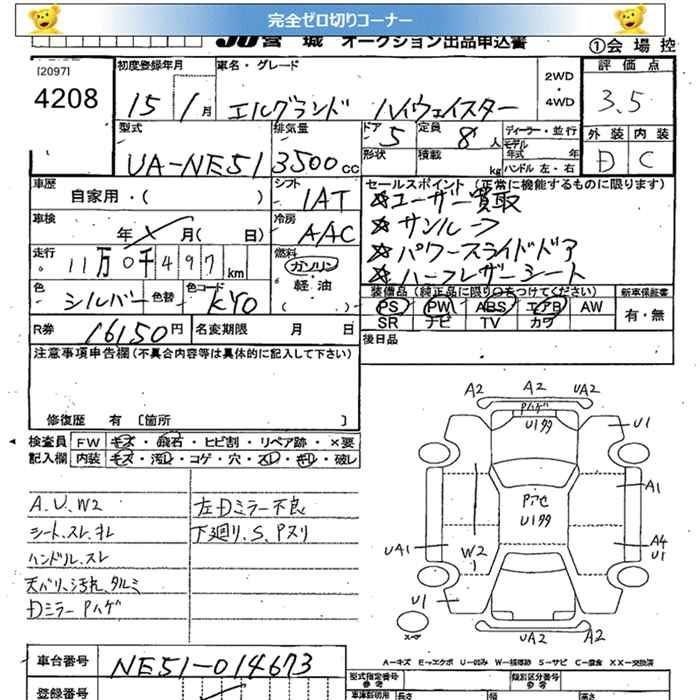 完全ゼロ切りコーナー
JU宮城 オークション出品申込書
①会場控
[2097]
4208
初度登録年月
15 1月
車名・グレード
エルグランド ハイウェイスター
2WD
・
4WD
評価点
3.5
型式
UA-NE51
排気量
3500cc
ドア 5
形状
定員 8人
積載 kg
ディーラー・並行
モデル年式 年
ハンドル 左・右
外装 内装
D C
車歴
自家用・( )
シフト
IAT
セールスポイント(正常に機能するものに限ります)
☆ユーザー買取
☆サンルーフ
☆パワースライドドア
☆ハーフレザーシート
車検
年 月( 日)
冷房
A/AC
走行
11万0千497km
燃料
ガソリン
・
軽油
( )
色
シルバー
色替
色コード
KY0
装備品(純正品に限り○をつけてください)
PS PW ABS エアB AW
SR ナビ TV カワ
新車保証書
有・無
R券 16150円
名変期限 月 日
後日品
注意事項申告欄(不具合内容等は具体的に記入して下さい)
修復歴 有 [箇所 ]
検査員 FW キズ・飛石・ヒビ割・リペア跡・×要
記入欄 内装 キズ・汚レ・コゲ・穴・スレ・キレ・破レ
A.U.W2
シート.スレ.キレ
ハンドル.スレ
天バリ.汚れ.タルミ
Dミラー Pハゲ
左Dミラー不良
下廻り.S.Pスリ
A2 A2 UA2
Pハゲ
U1タタ
U1
A1
Pアセ
U1タタ
A4
U1
UA1
W2
U1
スペア
UA2
A2
A−キズ E−エクボ U−凹み W−補修跡 S−サビ C−腐食 XX−交換済
車台番号
NE51-014673
登録番号
型式指定番号
参考
類別区分番号
参考
長さ
幅
高さ